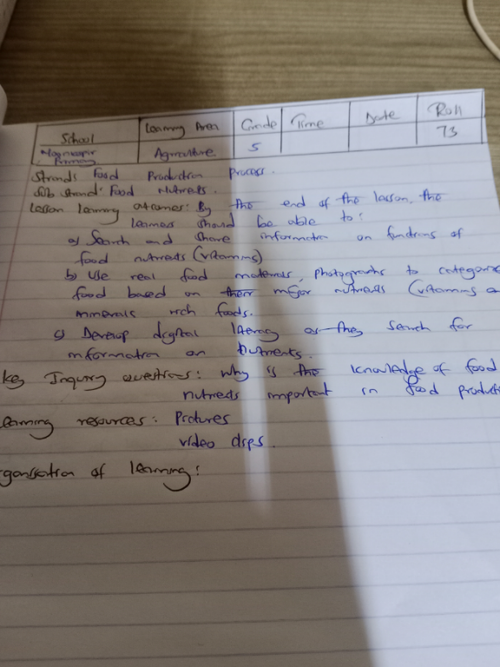 School | Learning Area | Grade | Time | Date | Roll
Primary | Agriculture | 5 | | | 73
Strand: Food Production Process.
Sub strand: Food Nutrients.
Lesson learning outcomes: By the end of the lesson, the
learners should be able to:
a) Search and share information on functions of
food nutrients (vitamins)
b) Use real food materials, photographs to categorise
food based on their major nutrients (vitamins
minerals rich foods.
c) Develop digital literacy as they search for
information on Nutrients.
key Inquiry questions: Why is the knowledge of food
nutrients important in food
Learning resources: Pictures
video clips.
organisation of learning: